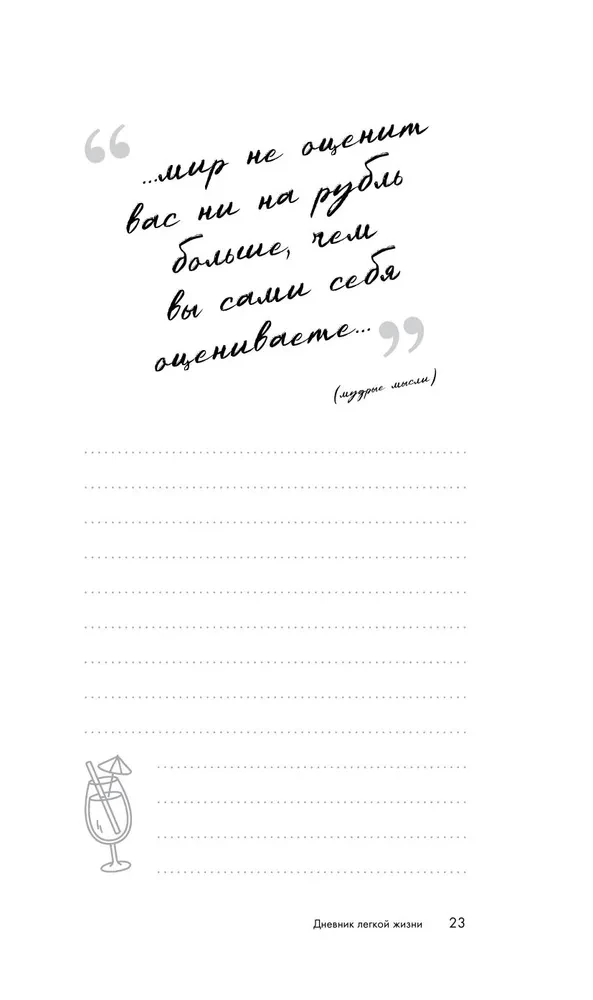 “
...мир не оценит
вас ни на рубль
больше, чем
вы сами себя
оцениваете...
”
(мудрые мысли)
Дневник легкой жизни 23